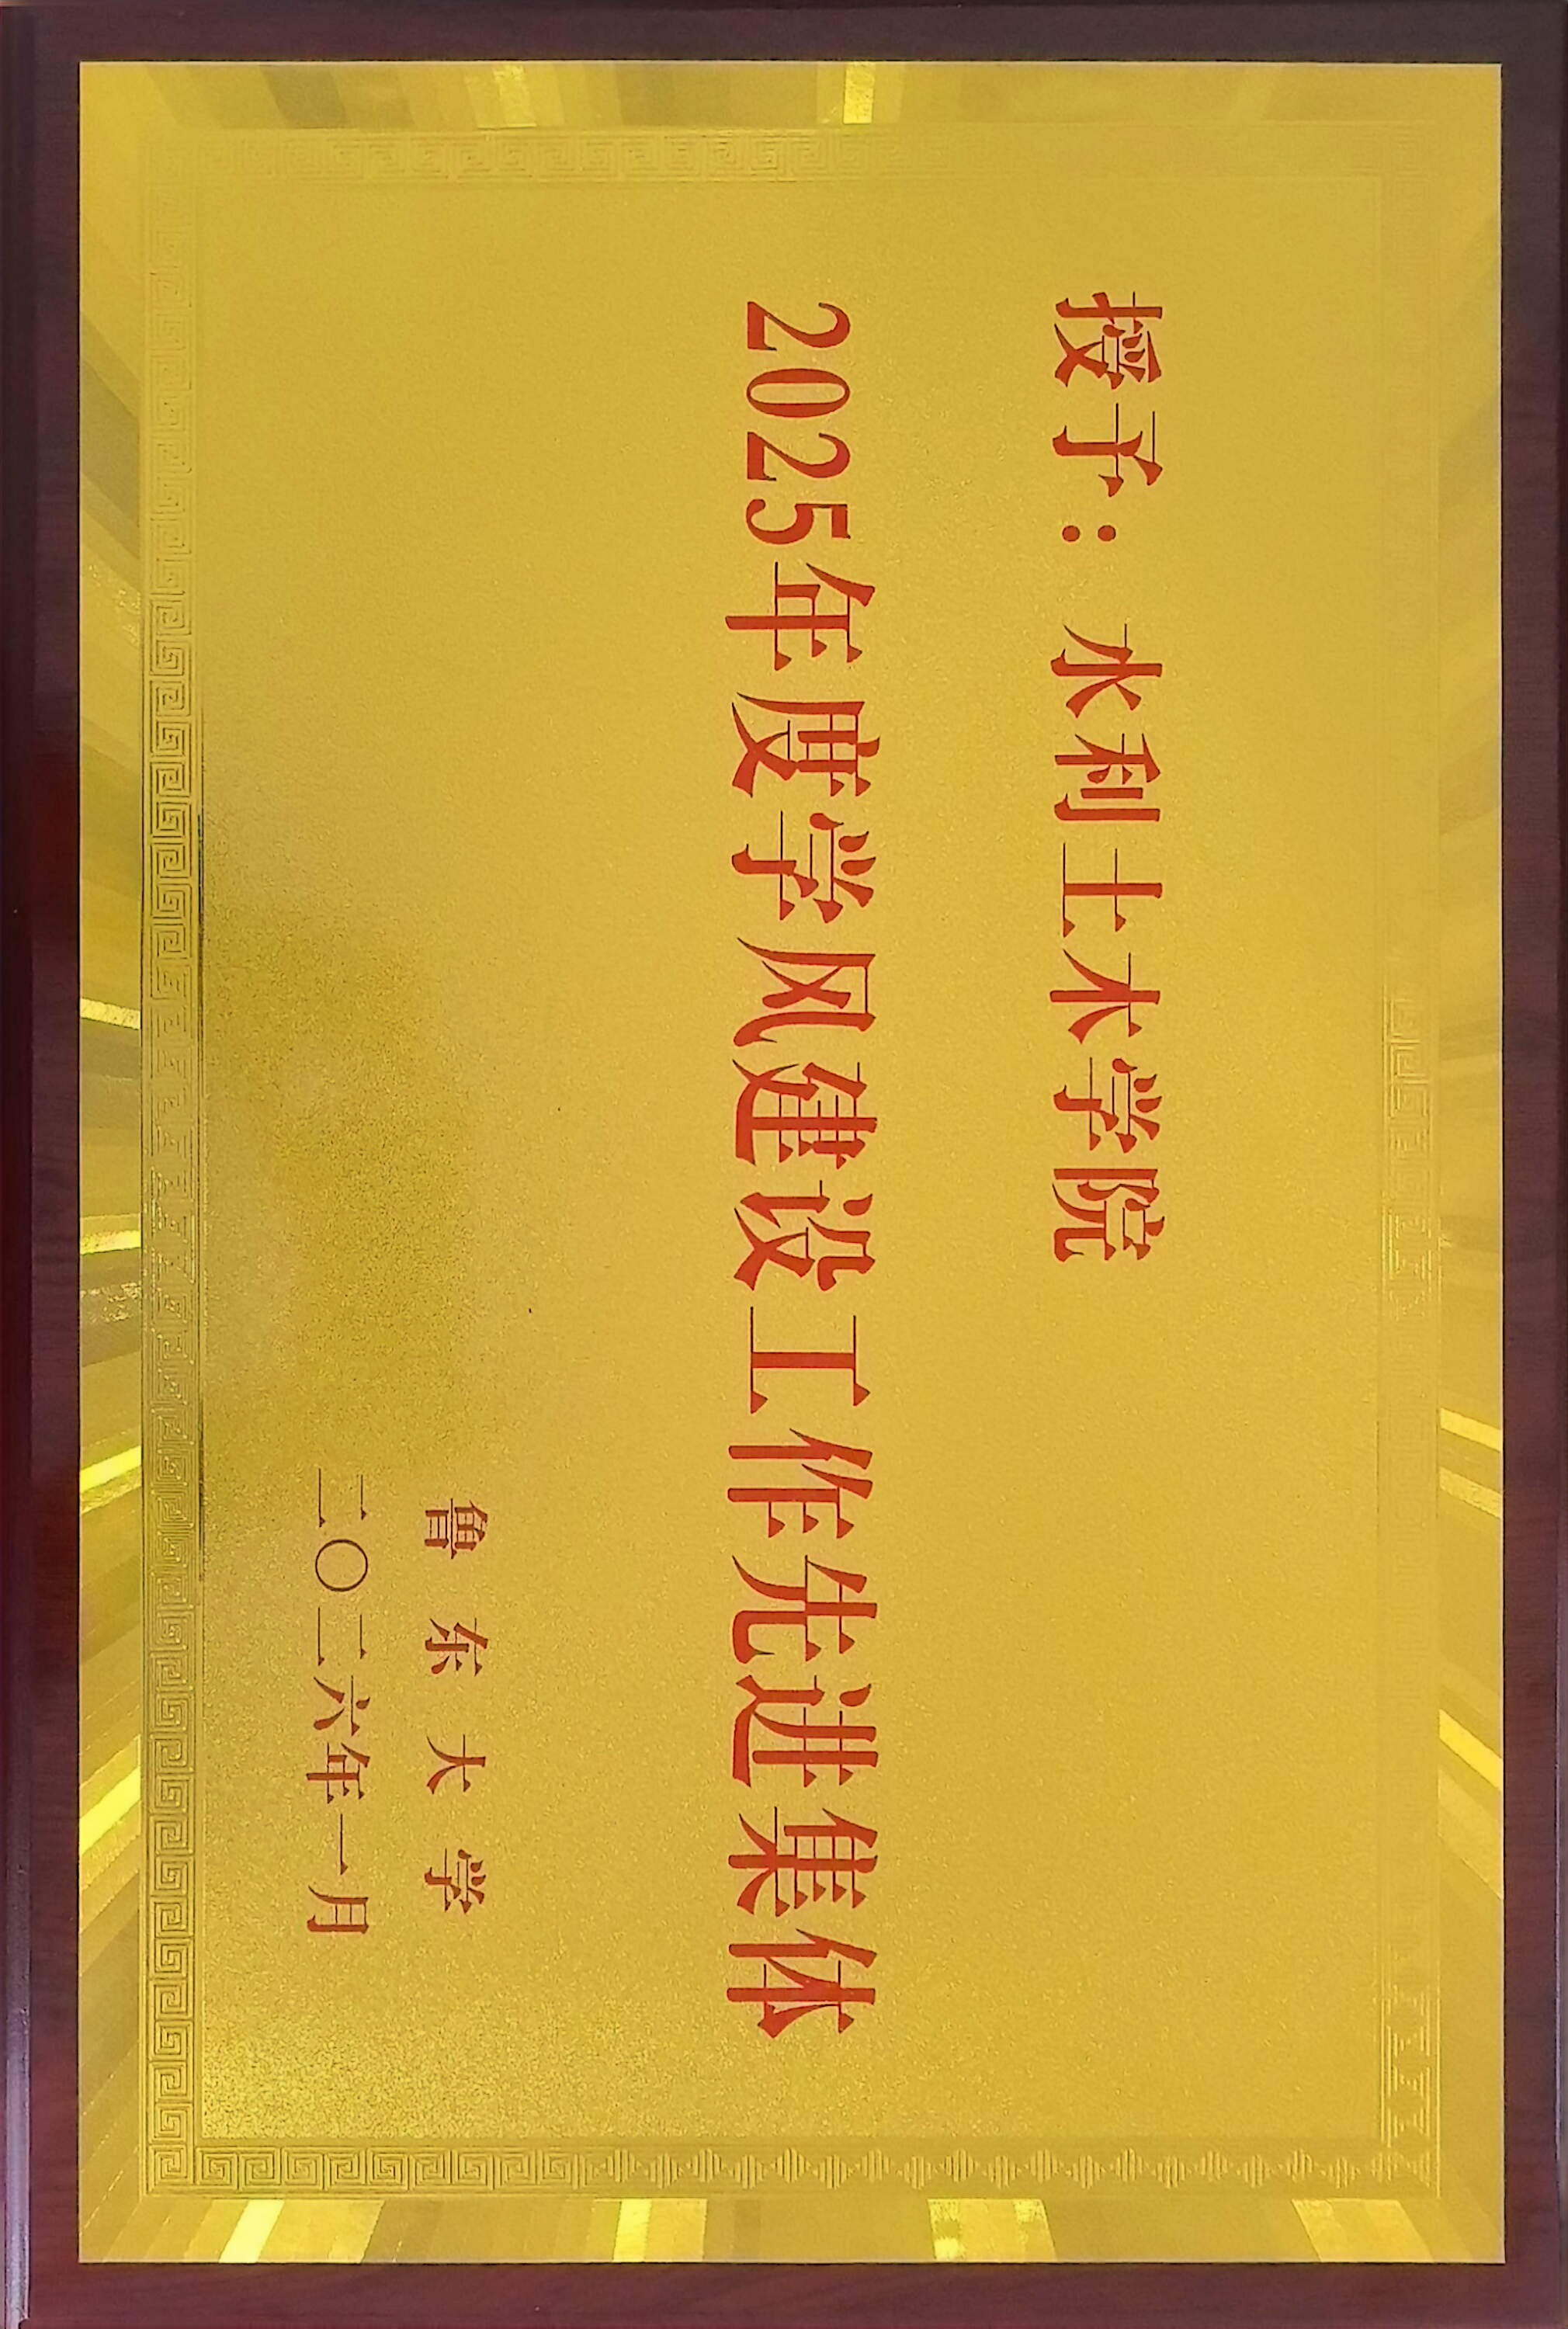 授予：水利土木学院
2025年度学风建设工作先进集体
鲁东大学
二〇二六年一月